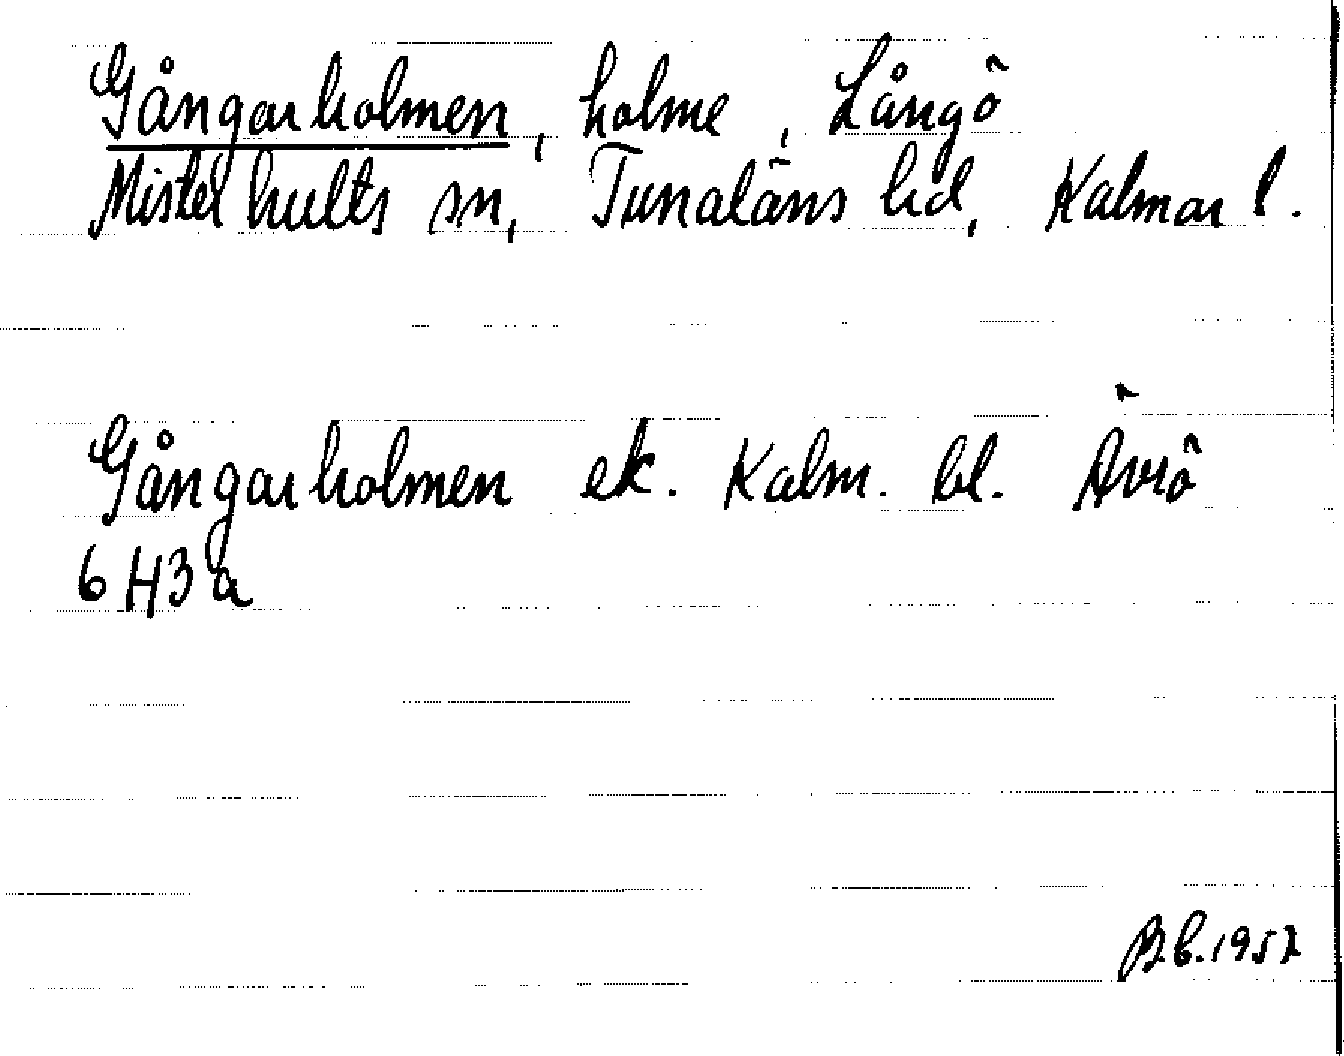 Gångarholmen, holme, Långö
Misterhults sn, Tunaläns hd, Kalmar l.
Gångarholmen ek. Kalm. bl. Ävrö
6 H3a
B.b. 1957